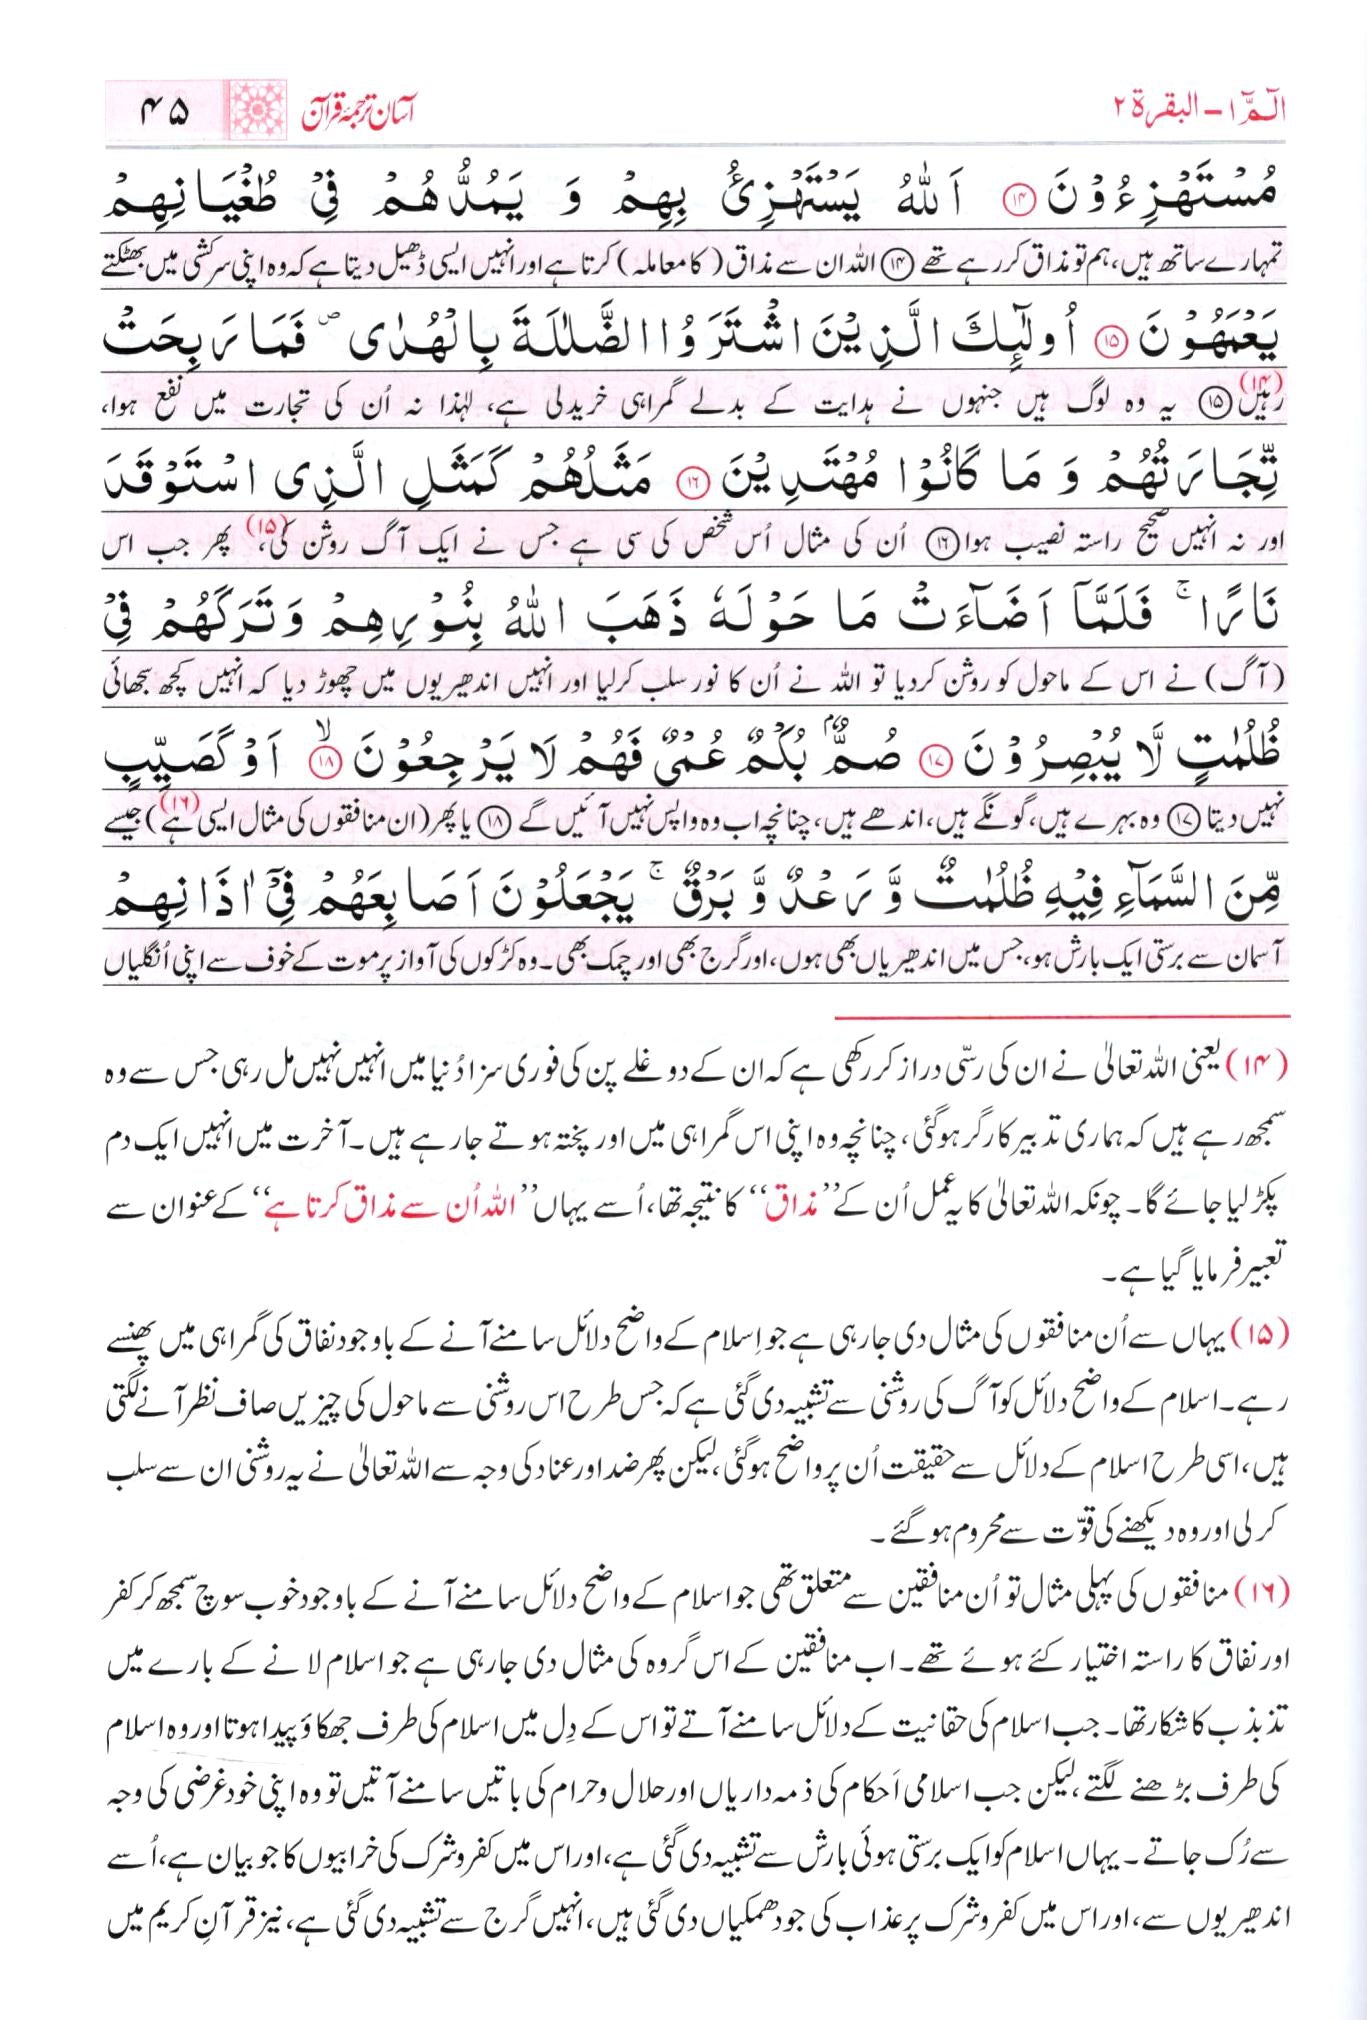 الٓمّٓ ۱ - البقرۃ ۲
آسان ترجمۂ قرآن
۴۵
مُسْتَهْزِءُوْنَ ۝۱۴ اَللّٰهُ يَسْتَهْزِئُ بِهِمْ وَ يَمُدُّهُمْ فِيْ طُغْيَانِهِمْ
تمہارے ساتھ ہیں، ہم تو مذاق کر رہے تھے ﴿۱۴﴾ اللہ ان سے مذاق (کا معاملہ) کرتا ہے اور انہیں ایسی ڈھیل دیتا ہے کہ وہ اپنی سرکشی میں بھٹکتے
يَعْمَهُوْنَ ۝۱۵ اُولٰٓئِكَ الَّذِيْنَ اشْتَرَوُا الضَّلٰلَةَ بِالْهُدٰى ۖ فَمَا رَبِحَتْ
رہیں (۱۴) ﴿۱۵﴾ یہ وہ لوگ ہیں جنہوں نے ہدایت کے بدلے گمراہی خرید لی ہے، لہٰذا نہ اُن کی تجارت میں نفع ہوا،
تِّجَارَتُهُمْ وَ مَا كَانُوْا مُهْتَدِيْنَ ۝۱۶ مَثَلُهُمْ كَمَثَلِ الَّذِى اسْتَوْقَدَ
اور نہ انہیں صحیح راستہ نصیب ہوا ﴿۱۶﴾ اُن کی مثال اُس شخص کی سی ہے جس نے ایک آگ روشن کی، (۱۵) پھر جب اس
نَارًا ۚ فَلَمَّآ اَضَآءَتْ مَا حَوْلَهٗ ذَهَبَ اللّٰهُ بِنُوْرِهِمْ وَتَرَكَهُمْ فِيْ
(آگ) نے اس کے ماحول کو روشن کردیا تو اللہ نے اُن کا نور سلب کرلیا اور انہیں اندھیریوں میں چھوڑ دیا کہ انہیں کچھ سجھائی
ظُلُمٰتٍ لَّا يُبْصِرُوْنَ ۝۱۷ صُمٌّۢ بُكْمٌ عُمْيٌ فَهُمْ لَا يَرْجِعُوْنَ ۙ۝۱۸ اَوْ كَصَيِّبٍ
نہیں دیتا ﴿۱۷﴾ وہ بہرے ہیں، گونگے ہیں، اندھے ہیں، چنانچہ اب وہ واپس نہیں آئیں گے ﴿۱۸﴾ یا پھر (ان منافقوں کی مثال ایسی ہے (۱۶)) جیسے
مِّنَ السَّمَآءِ فِيْهِ ظُلُمٰتٌ وَّ رَعْدٌ وَّ بَرْقٌ ۚ يَجْعَلُوْنَ اَصَابِعَهُمْ فِيْٓ اٰذَانِهِمْ
آسمان سے برستی ایک بارش ہو، جس میں اندھیریاں بھی ہوں، اور گرج بھی اور چمک بھی۔ وہ کڑکوں کی آواز پر موت کے خوف سے اپنی اُنگلیاں
(۱۴) یعنی اللہ تعالیٰ نے ان کی رسّی دراز کر رکھی ہے کہ ان کے دوغلے پن کی فوری سزا دُنیا میں انہیں نہیں مل رہی جس سے وہ
سمجھ رہے ہیں کہ ہماری تدبیر کارگر ہوگئی، چنانچہ وہ اپنی اس گمراہی میں اور پختہ ہوتے جارہے ہیں۔ آخرت میں انہیں ایک دم
پکڑ لیا جائے گا۔ چونکہ اللہ تعالیٰ کا یہ عمل اُن کے ”مذاق“ کا نتیجہ تھا، اُسے یہاں ”اللہ اُن سے مذاق کرتا ہے“ کے عنوان سے
تعبیر فرمایا گیا ہے۔
(۱۵) یہاں سے اُن منافقوں کی مثال دی جارہی ہے جو اِسلام کے واضح دلائل سامنے آنے کے باوجود نفاق کی گمراہی میں پھنسے
رہے۔ اسلام کے واضح دلائل کو آگ کی روشنی سے تشبیہ دی گئی ہے کہ جس طرح اس روشنی سے ماحول کی چیزیں صاف نظر آنے لگتی
ہیں، اسی طرح اسلام کے دلائل سے حقیقت اُن پر واضح ہوگئی، لیکن پھر ضد اور عناد کی وجہ سے اللہ تعالیٰ نے یہ روشنی ان سے سلب
کر لی اور وہ دیکھنے کی قوّت سے محروم ہو گئے۔
(۱۶) منافقوں کی پہلی مثال تو اُن منافقین سے متعلق تھی جو اسلام کے واضح دلائل سامنے آنے کے باوجود خوب سوچ سمجھ کر کفر
اور نفاق کا راستہ اختیار کئے ہوئے تھے۔ اب منافقین کے اس گروہ کی مثال دی جارہی ہے جو اسلام لانے کے بارے میں
تذبذب کا شکار تھا۔ جب اسلام کی حقانیت کے دلائل سامنے آتے تو اس کے دِل میں اسلام کی طرف جھکاؤ پیدا ہوتا اور وہ اسلام
کی طرف بڑھنے لگتے، لیکن جب اسلامی اَحکام کی ذمہ داریاں اور حلال و حرام کی باتیں سامنے آتیں تو وہ اپنی خودغرضی کی وجہ
سے رُک جاتے۔ یہاں اسلام کو ایک برستی ہوئی بارش سے تشبیہ دی گئی ہے، اور اس میں کفر و شرک کی خرابیوں کا جو بیان ہے، اُسے
اندھیریوں سے، اور اس میں کفر و شرک پر عذاب کی جو دھمکیاں دی گئی ہیں، انہیں گرج سے تشبیہ دی گئی ہے، نیز قرآنِ کریم میں